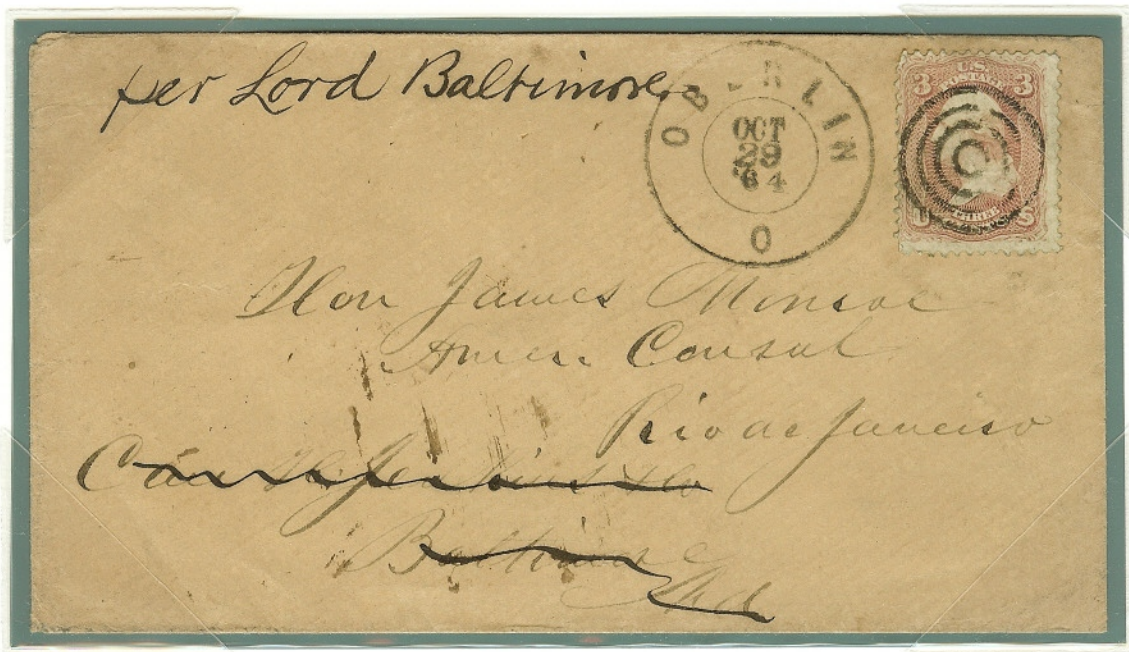 per Lord Baltimore
OBERLIN
OCT
29
'64
O
U.S.
3 POSTAGE 3
THREE
U S
Hon James Monroe
Amer. Consul
Rio de Janeiro
Care
Baltimore
Md